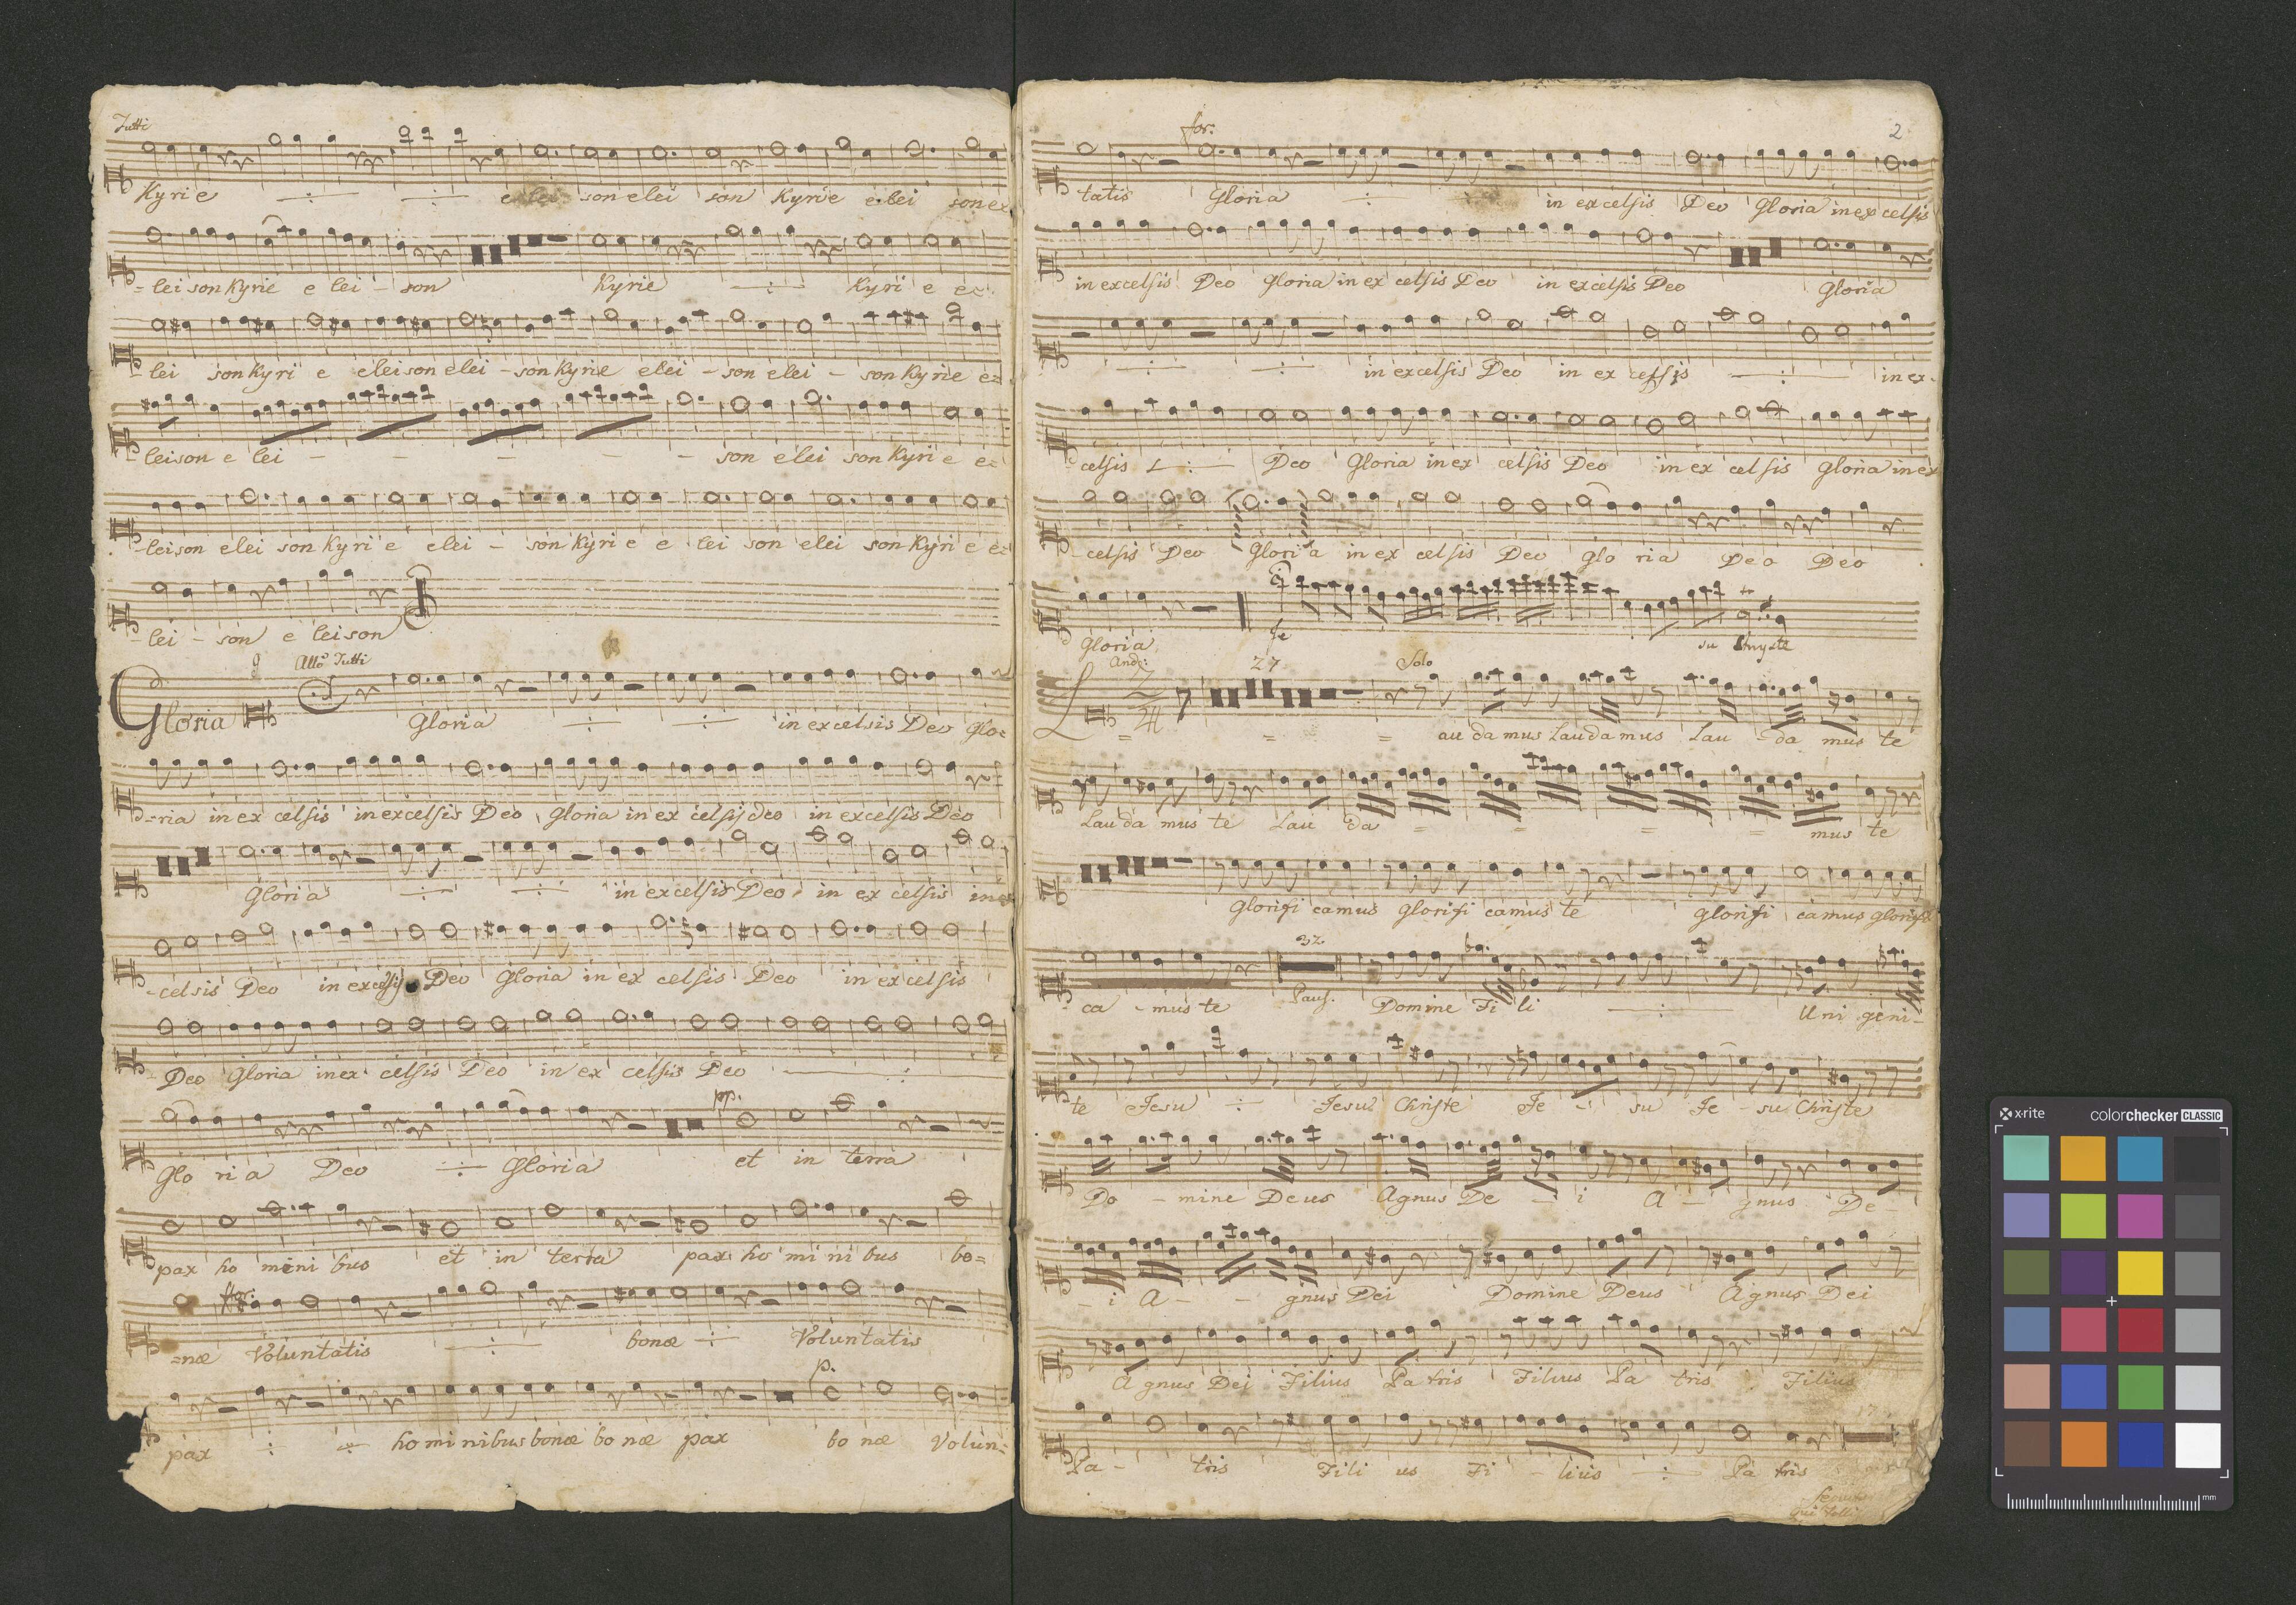 Tutti
Kyrie elei son elei son Kyrie elei son e=
=lei son Kyrie e lei - son Kyrie Kyri e e=
-lei son Kyri e eleison elei - son Kyrie elei - son elei - son Kyrie e=
-leison e lei - - - - - son elei son Kyri e e=
-leison elei son Kyri e elei - son Kyri e e lei son elei son Kyri e e=
-lei - son e leison
Allo Tutti
Gloria Gloria in excelsis Deo Glo=
=ria in ex celsis in excelsis Deo Gloria in ex celsis deo in excelsis Deo
Gloria in excelsis Deo in ex celsis in ex
-celsis Deo in excelsis Deo Gloria in ex celsis Deo in ex celsis
Deo Gloria in ex celsis Deo in ex celsis Deo
pp.
Glo ri a Deo Gloria et in terra
pax ho mini bus et in terra pax ho mi ni bus bo=
for:
=næ Voluntatis bonæ Voluntatis
p.
pax hominibus bonæ bo næ pax bo næ Volun=
2
for:
tatis Gloria in excelsis Deo Gloria in ex celsis
in excelsis Deo Gloria in ex celsis Deo in excelsis Deo Gloria
in excelsis Deo in ex celsis in ex-
-celsis Deo Gloria in ex celsis Deo in ex cel sis Gloria in ex
-celsis Deo Gloria in ex celsis Deo glo ria Deo Deo
Gloria Je su Chryste
And: 27 Solo
2/4
L = = = au da mus Lau da mus Lau - da mus te
Lau da mus te Lau da = = = = mus te
Glorifi camus Glorifi camus te glorifi camus glorifi
32
-ca - mus te Paus. Domine Fi li Uni geni-
te Jesu Jesu Christe Je - su Je - su Christe
Do - mine Deus Agnus De - i A - gnus De-
-i A - - gnus Dei Domine Deus Agnus Dei
A gnus Dei Filius Pa tris Filius Pa tris Filius
17
Pa - tris Fili us Fi - lius Pa tris
qui Tollis